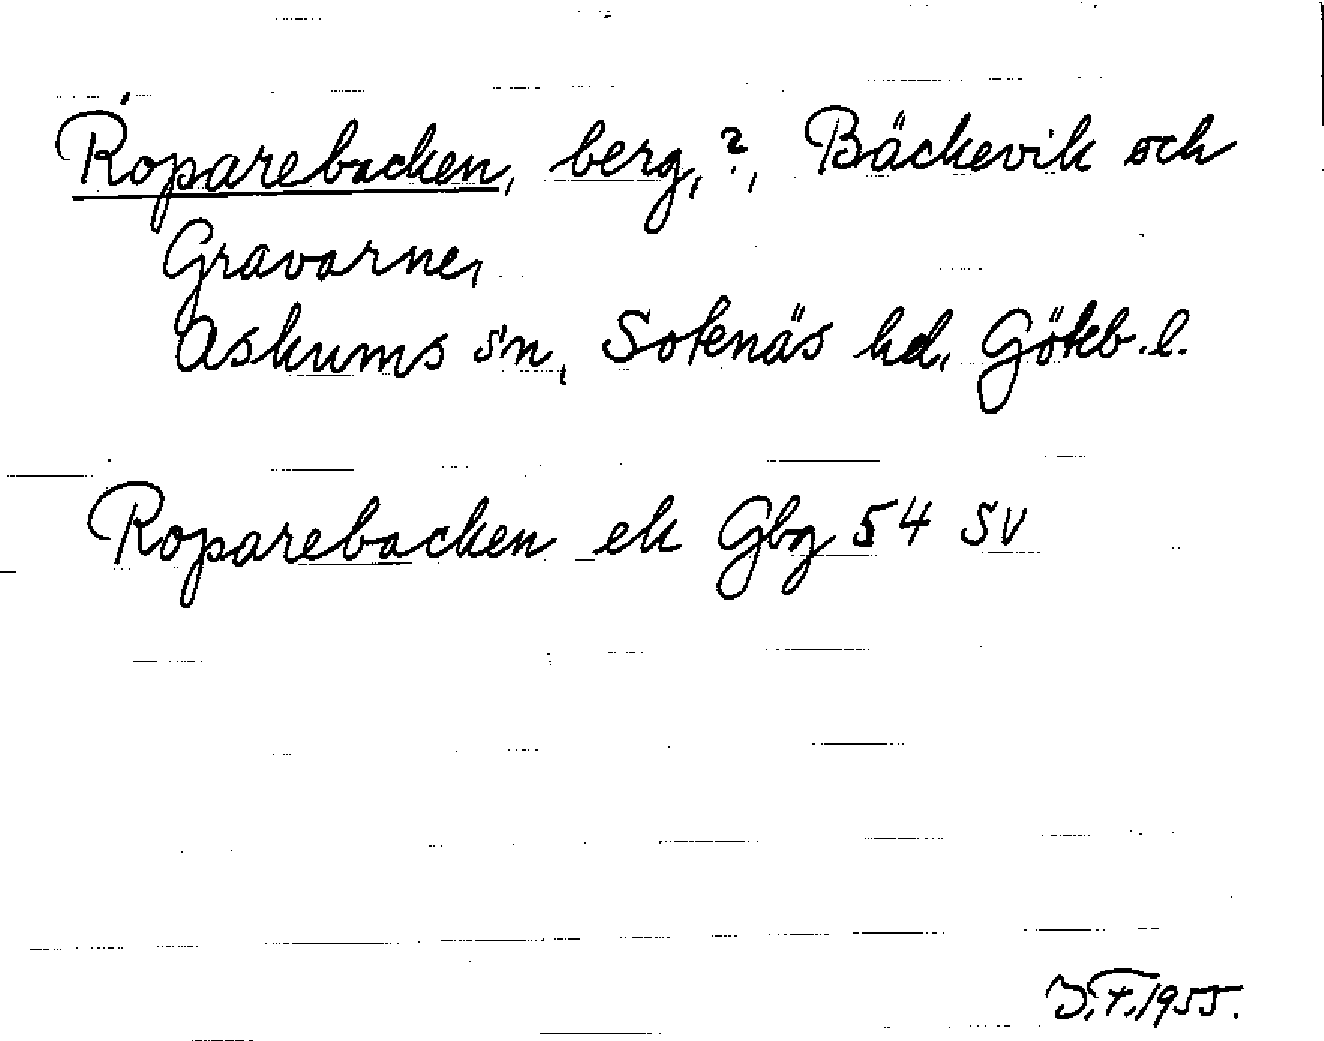 Roparebacken, berg, ?, Bäckevik och
Gravarne,
Askums sn, Sotenäs hd, Göteb. l.
Roparebacken ek Gbg 54 SV
J.F. 1955.